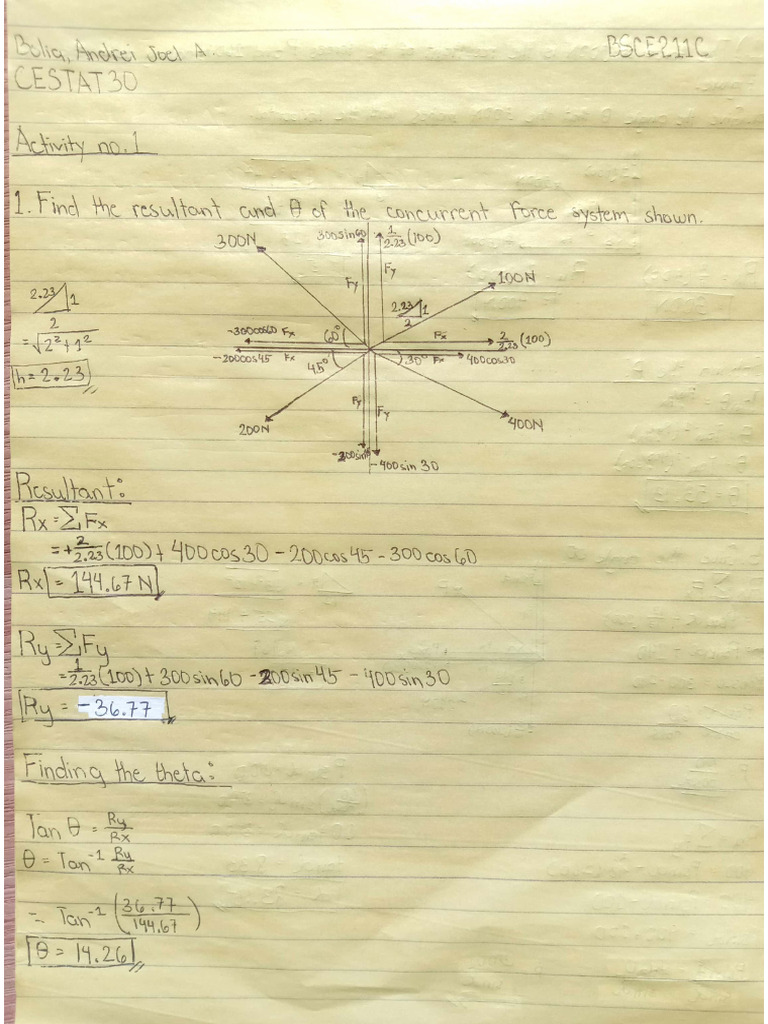 Bolia, Andrei Joel A. BSCE211C
CESTAT30
Activity no. 1
1. Find the resultant and θ of the concurrent force system shown.
300N
300sin60
1/2.23 (100)
Fy
Fy
100N
2.23
1
2
2.23
1
2
=√2²+1²
h=2.23
-300cos60 Fx
60°
Fx
2/2.23 (100)
-200cos45 Fx
45°
30° Fx
400cos30
Fy
Fy
200N
400N
-200sin45
-400sin30
Resultant:
Rx=ΣFx
=+2/2.23 (100) + 400cos30 - 200cos45 - 300cos60
Rx = 144.67 N
Ry=ΣFy
=1/2.23 (100) + 300sin60 - 200sin45 - 400sin30
Ry = -36.77
Finding the theta:
Tan θ = Ry/Rx
θ = Tan⁻¹ Ry/Rx
= Tan⁻¹ (36.77/144.67)
θ = 14.26